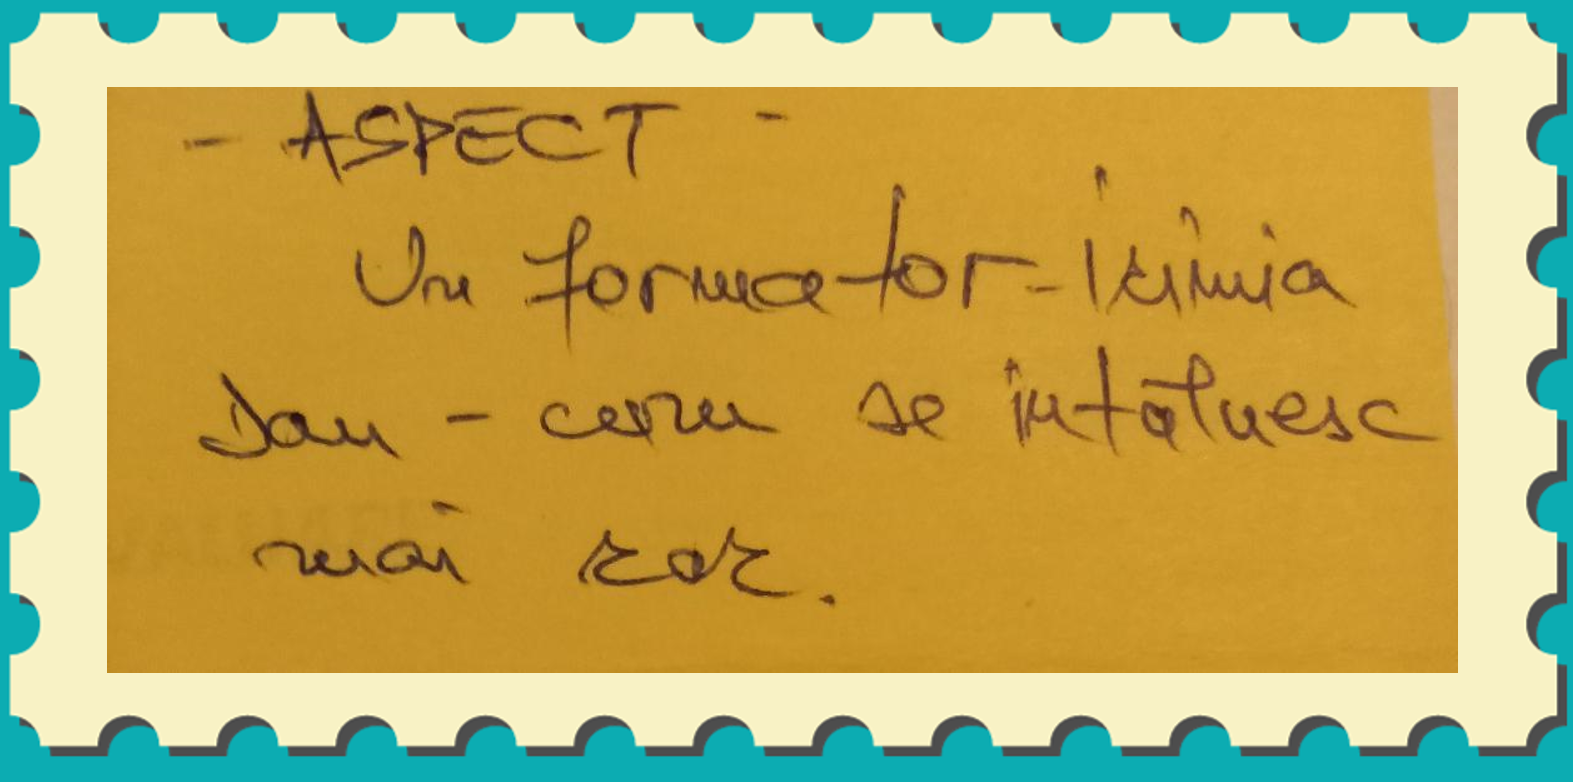 - ASPECT -
Un formator - Irimia
Dan - cum se întâlnesc
mai rar.